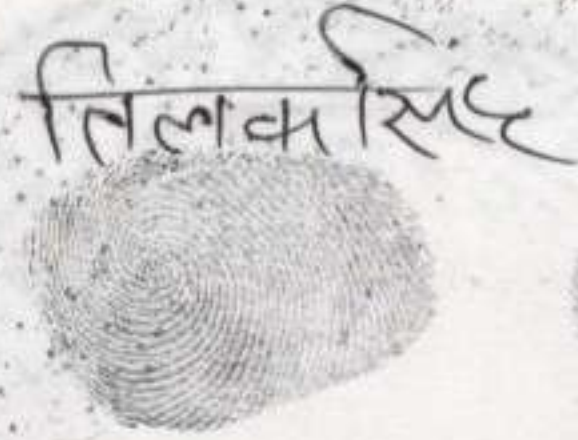 तिलक सिंह